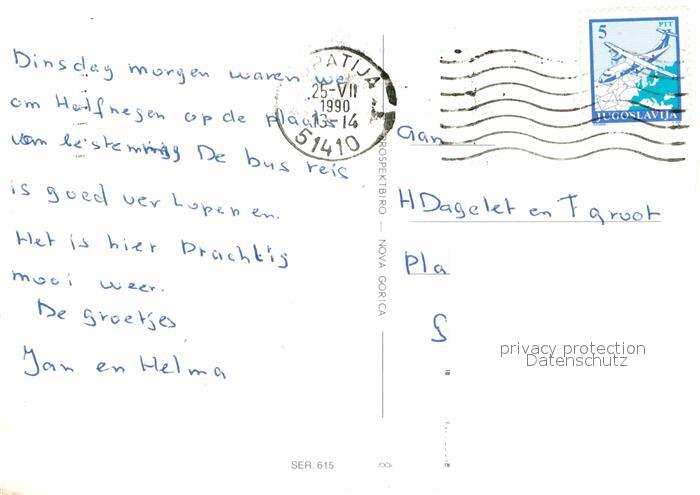 Dinsdag morgen waren we
om Halfnegen op de plaats
van bestemming De bus reis
is goed ver lopen en.
Het is hier Prachtig
mooi weer.
De groetjes
Jan en Helma
PATIJA
25-VII
1990
13-14
51410
5 PTT
JUGOSLAVIJA
aan
H Dagelet en T groot
Pla
S
privacy protection
Datenschutz
ROSPEKTBIRO — NOVA GORICA
SER. 615